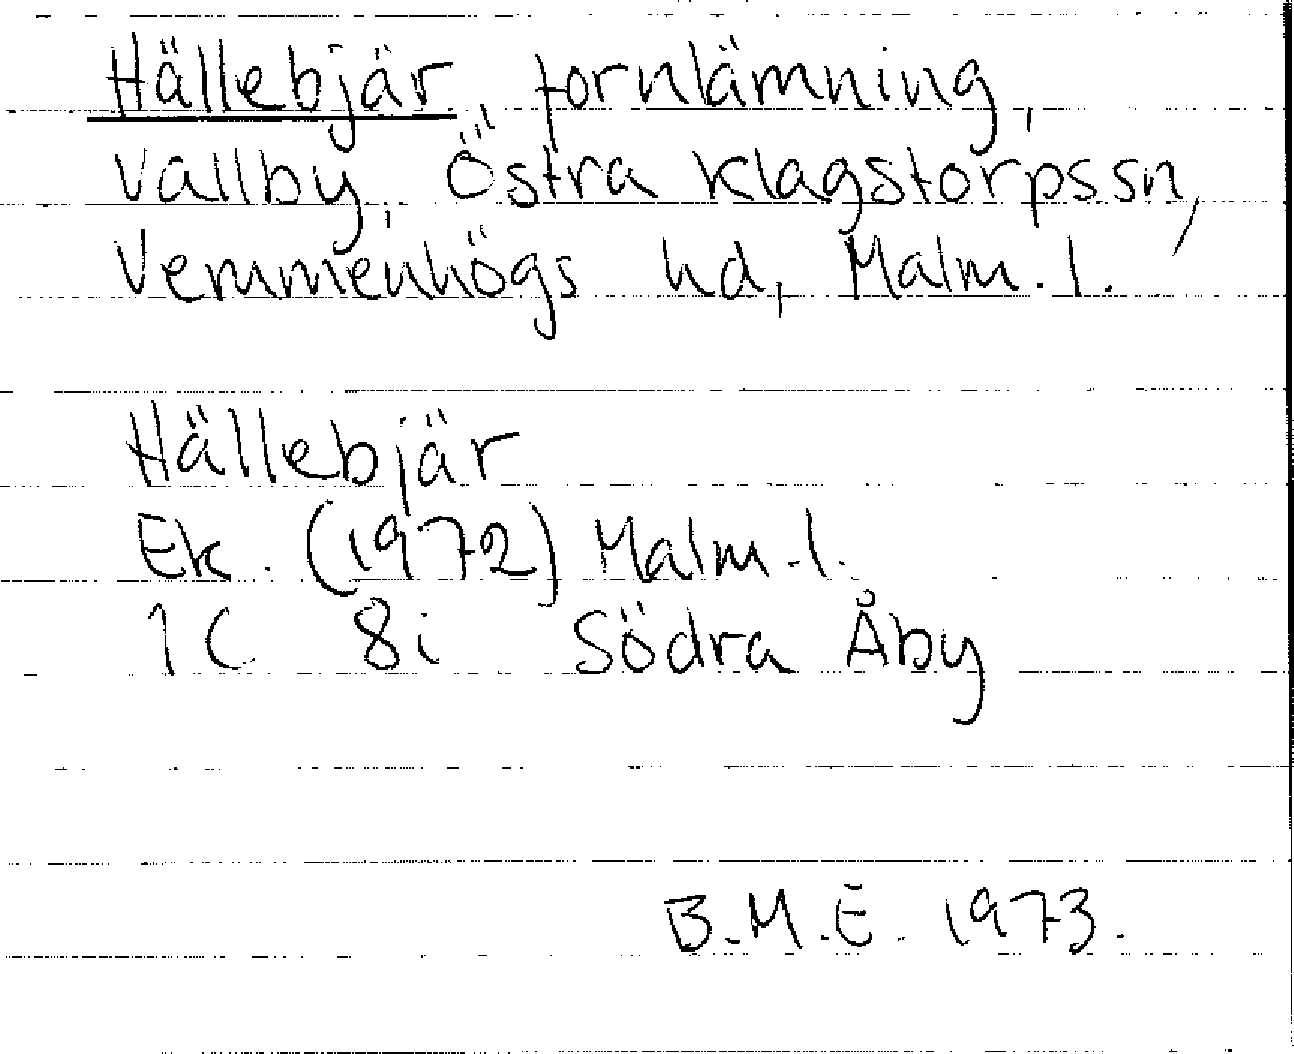 Hällebjär, fornlämning,
Vallby, Östra Klagstorpssn,
Vemmenhögs hd, Malm. l.
Hällebjär
Ek. (1972) Malm. l.
1C 8i Södra Åby
B.M.E. 1973.